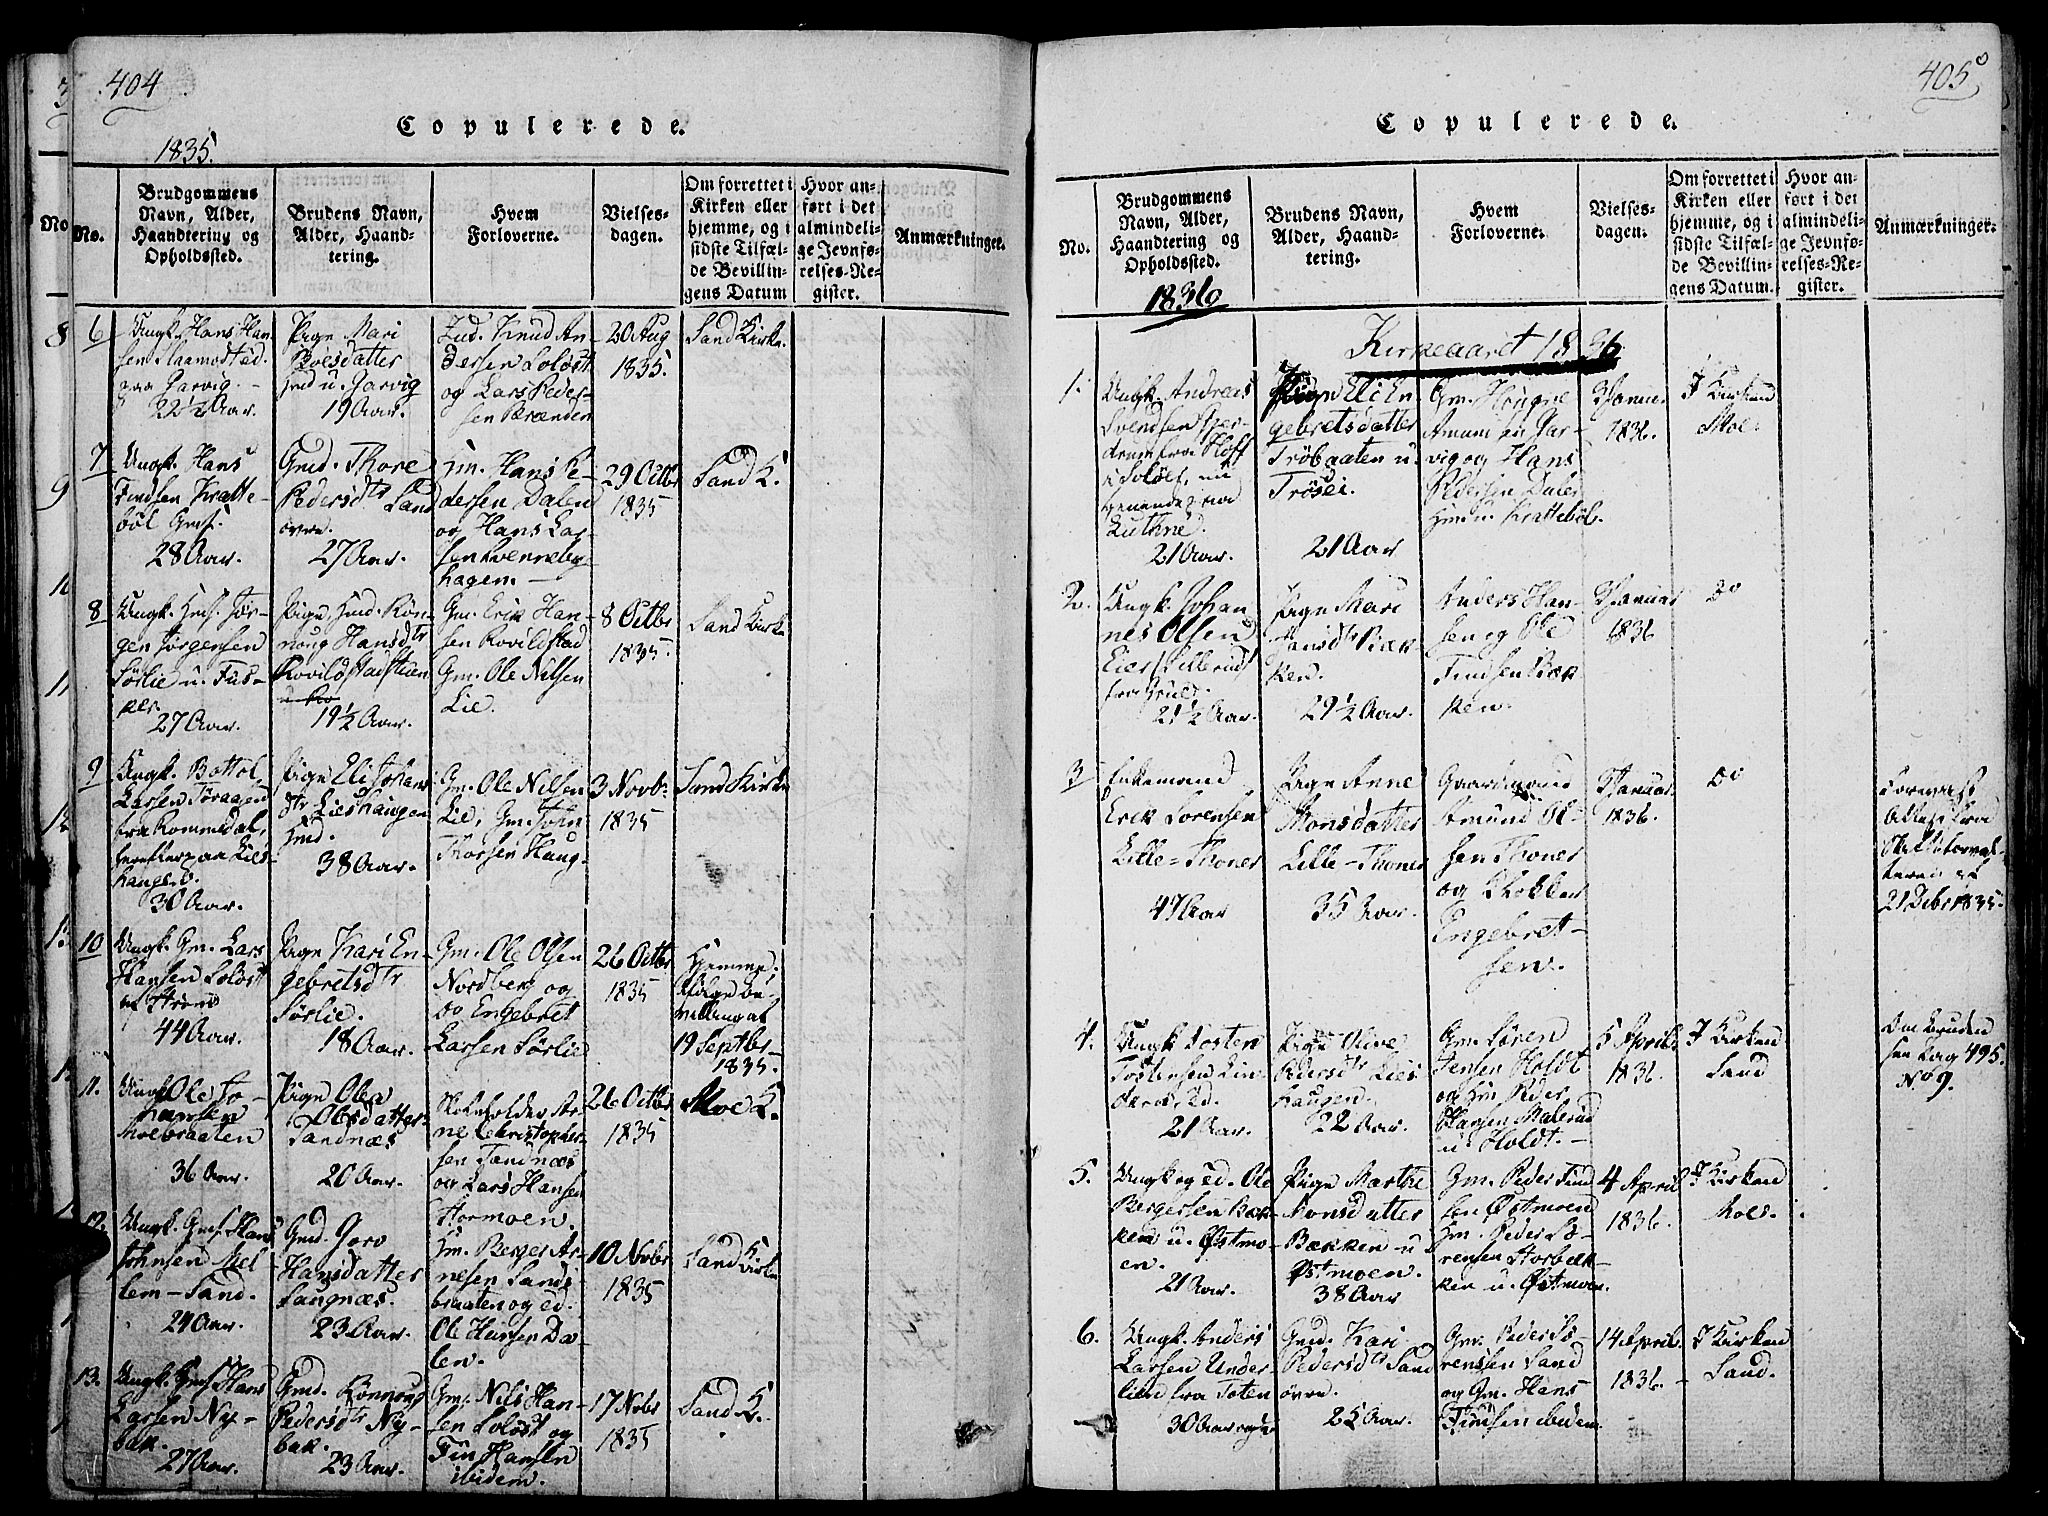 404
Copulerede.
1835.
No.
Brudgommens
Navn, Alder,
Haandtering og
Opholdssted.
Brudens Navn,
Alder, Haand-
tering.
Hvem
Forloverne.
Vielses-
dagen.
Om forrettet i
Kirken eller
hjemme, og i
sidste Tilfæl-
de Bevillin-
gens Datum
Hvor an-
ført i det
almindeli-
ge Jevnfø-
relses-Re-
gister.
Anmærkninger.
6
Ungk. Hans Han-
sen
paa Garvig.
22½ Aar.
Pige Mari
Hmd u. Garvig
19 Aar.
Knud An-
dersen Solöst
og Lars Peder-
sen
20 Aug
1835.
Sand Kirke.
7
Ungk. Hans
Findsen Kratte-
böl Gmf.
28 Aar.
Gmd. Thore
Pedersdtr Sand
övre.
27 Aar.
Gm. Hans Pe-
dersen Dalen
og Hans Lar-
sen
hagen.
29 Octbr
1835
Sand K.
8
Ungk. Hmf. Jör-
gen Jörgensen
Sörlie u. Fus-
ker.
27 Aar.
Pige Hmd. Rön-
noug Hansdtr
Rovildstadstuen
19½ Aar.
Gm. Erik Han-
sen Rovildstad
Gm. Ole Nilsen
Lie.
8 Octbr
1835.
Sand Kirke
9
Ungk. Bottol.
Larsen
fra Rommedal,
Lies-
haugen.
30 Aar.
Pige Eli Johans
dtr Lieshaugen
Hmd.
38 Aar.
Gm. Ole Nilsen
Lie, Gm. John
Thorsen Haug.
3 Novb.
1835
Sand Kirke
10
Ungk. Gm. Lars
Hansen Solöst
44 Aar.
Pige Kari En-
gebretsdtr
Sörlie.
18 Aar.
Gm. Ole Olsen
Nordberg og
do Engebret
Larsen Sörlie
26 Octbr
1835
Hjemme,
ifölge be-
villing af
19 Septbr
1835.
11.
Ungk. Ole Jo-
hansen
Moebraaten
36 Aar.
Pige Olea
Olesdatter
Sandnæs
20 Aar.
Skoleholder Ar-
ne Christopher-
sen Sandnæs
og Lars Hansen
Stormoen.
26 Octbr
1835
Moe K.
12.
Ungk. Gmf. Hans
Johnsen Mel-
lem-Sand.
24 Aar.
Gmd. Goro
Hansdatter
Saugnæs.
23 Aar.
Hm. Berger Ar-
nesen Sands-
braaten og ed.
Ole Hansen Da-
len.
10 Novbr
1835
Sand K.
Kirke
13.
Ungk. Gmf. Hans
Larsen Ny-
bak.
27 Aar.
Gmd. Rönnoug
Pedersdtr Ny-
bak.
23 Aar.
Gm. Nils Han-
sen Solöst og
Fin Hansen
ibidem.
17 Nvbr
1835
Sand K.
405
Copulerede.
No.
Brudgommens
Navn, Alder,
Haandtering og
Opholdssted.
1836
Brudens Navn,
Alder, Haand-
tering.
Hvem
Forloverne.
Vielses-
dagen.
Om forrettet i
Kirken eller
hjemme, og i
sidste Tilfæl-
de Bevillin-
gens Datum.
Hvor an-
ført i det
almindeli-
ge Jevnfø-
relses-Re-
gister.
Anmærkninger.
Kirkeaaret 1836
1.
Ungk. Andreas
Svendsen Gjer-
drum fra Hoff
i Solöer, nu
Kuthne.
21 Aar.
Pige Eli En-
gebretsdatter
Tröbaaten u.
Trösei.
21 Aar
Gm. Hougne
Amunsen Gar-
vig og Hans
Pedersen Dalen
Hmd u. Kratteböl.
Januar
1836.
I Kirken
Moe.
2.
Ungk. Johan-
nes Olsen
Eier Lillerud
21½ Aar.
Pige Mari
Hansdtr Bæk-
ken.
29½ Aar.
Anders Han-
sen og Ole
Findsen Bæk-
ken.
Januar
1836
do
3
Enkemand
Erik Sorensen
Lille-Thoner
47 Aar
Pige Anne
Monsdatter
Lille-Thoner
35 Aar.
Gaardmand
Amund Ol-
sen Thoner
og Klokker
Engebret-
sen.
Januar
1836.
do
Forevist
Attest fra
Skifteforval-
teren af
21 Debr 1835.
4.
Ungk. Tosten
Tostensen Lin-
derud, Ed.
21 Aar.
Pige Olive
Pedersdtr Lies
haugen.
22 Aar.
Gm. Sören
Jensen Holdt
og Hm. Peder
Hansen Malerud
u. Holdt.
5 April
1836.
I Kirken
Sand
Om Bruden
see Pag 495.
No 9.
5.
Ungk og ed. Ole
Bergersen Bæk-
ken u. Östmo-
en.
21 Aar.
Pige Marthe
Monsdatter
Bækken u
Östmoen.
38 Aar
Gm. Peder Find
sen Östmoen
Hm. Peder Sö-
rensen Storbæk-
ken u. Östmoen.
4 April
1836.
I Kirken
Moe.
6.
Ungk. Anders
Larsen Under-
lien fra Toten
30 Aar
Gmd. Kari
Pedersdtr Sand
övre.
25 Aar.
Gm. Peder Sö-
rensen Sand
og Gm. Hans
Findsen ibidem
14 April.
1836.
I Kirken
Sand.